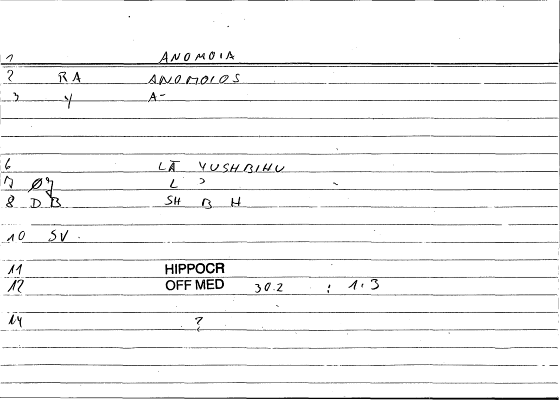 1 ANOMOIA
2 RA ANOMOIOS
3 Y A-
6 LĀ YUSHBIHU
7 L ɔ
8 DB SH B H
10 SV
11 HIPPOCR
12 OFF MED 30.2 : 1.3
14 ?